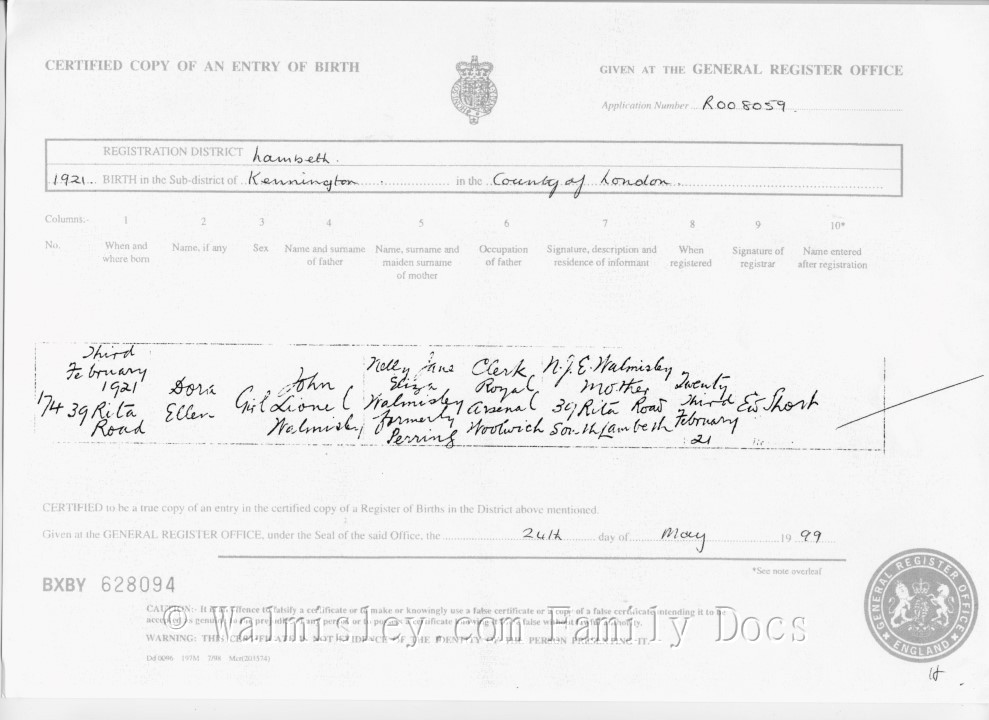 CERTIFIED COPY OF AN ENTRY OF BIRTH
GIVEN AT THE GENERAL REGISTER OFFICE
Application Number R008059
REGISTRATION DISTRICT Lambeth.
1921 BIRTH in the Sub-district of Kennington in the County of London
Columns:- 1 2 3 4 5 6 7 8 9 10*
No.
When and
where born
Name, if any
Sex
Name and surname
of father
Name, surname and
maiden surname
of mother
Occupation
of father
Signature, description and
residence of informant
When
registered
Signature of
registrar
Name entered
after registration
174
Third
February
1921
39 Rita
Road
Dora
Ellen
Girl
John
Lionel
Walmisley
Nelly Jane
Eliza
Walmisley
formerly
Perring
Clerk
Royal
Arsenal
Woolwich
N.J.E. Walmisley
Mother
39 Rita Road
South Lambeth
Twenty
Third
February
21
Short
CERTIFIED to be a true copy of an entry in the certified copy of a Register of Births in the District above mentioned.
Given at the GENERAL REGISTER OFFICE, under the Seal of the said Office, the 24th day of May 1999
*See note overleaf
BXBY 628094
CAUTION:- It is an offence to falsify a certificate or to make or knowingly use a false certificate or a copy of a false certificate intending it to be
accepted as genuine to the prejudice of any person or to possess a certificate knowing it to be false without lawful authority.
WARNING: THIS CERTIFICATE IS NOT EVIDENCE OF THE IDENTITY OF THE PERSON PRESENTING IT.
© Walmisley.com Family Docs
GENERAL REGISTER OFFICE
ENGLAND